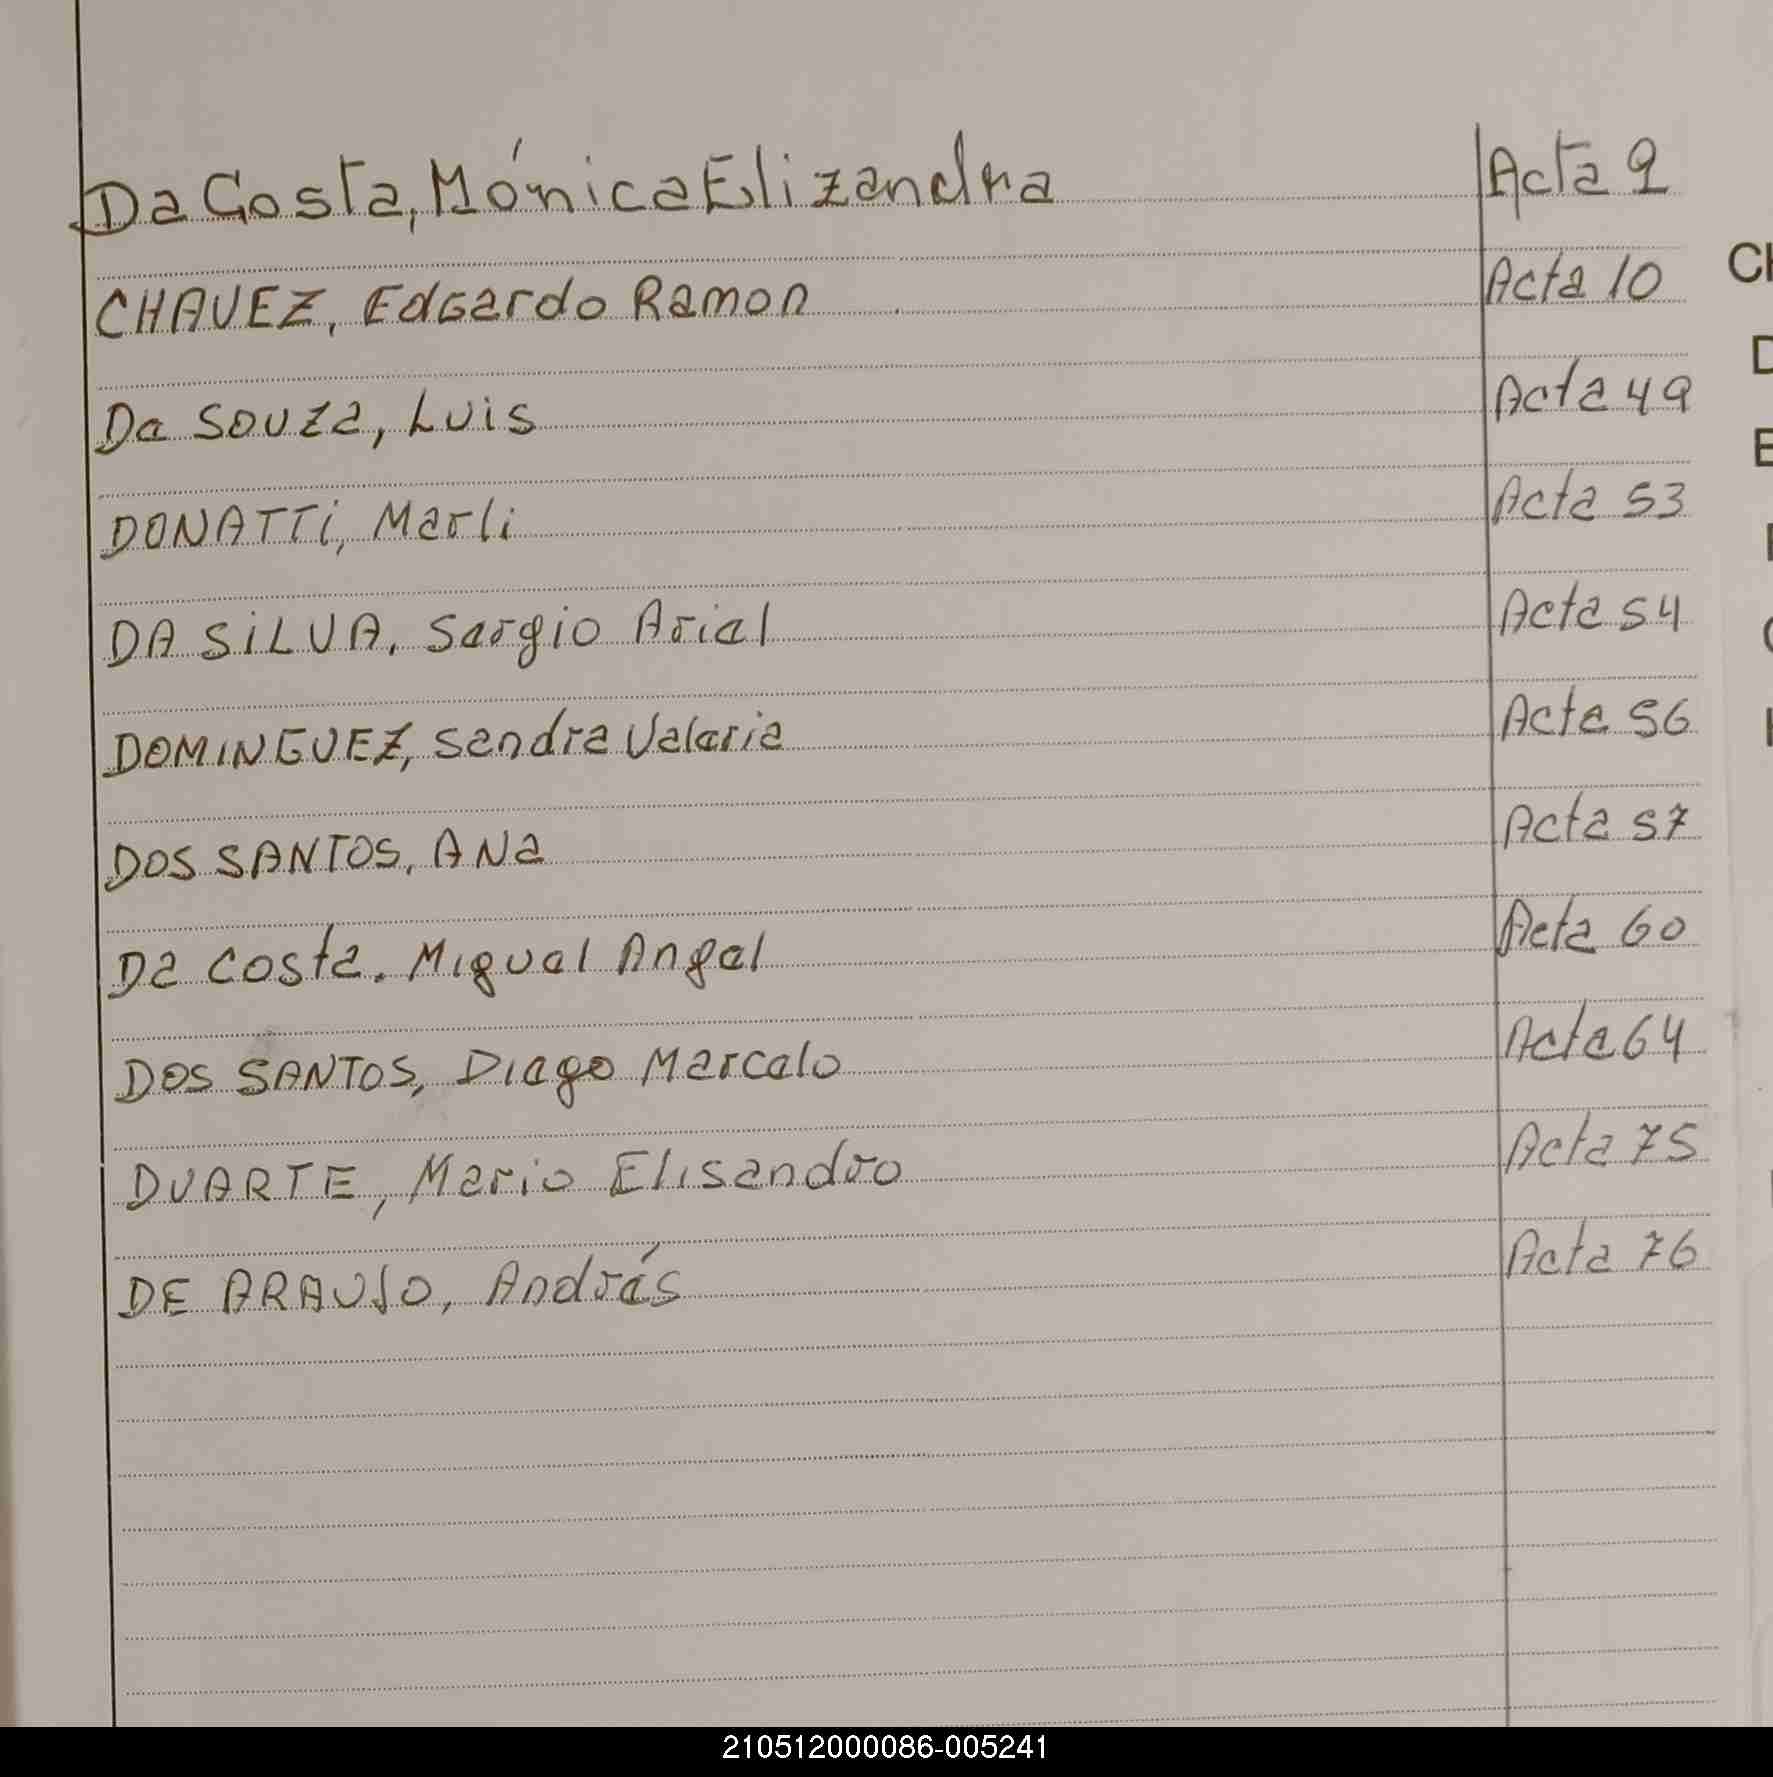 Da Costa, Mónica Elizandra Acta 9
CHAVEZ, Edgardo Ramon Acta 10
De Souza, Luis Acta 49
DONATTi, Marli Acta 53
DA SiLVA, Sergio Ariel Acta 54
DOMINGUEZ, Sandra Valeria Acta 56
DOS SANTOS, ANa Acta 57
Da Costa, Miguel Angel Acta 60
DOS SANTOS, Diego Marcelo Acta 64
DUARTE, Mario Elisandro Acta 75
DE ARAUJO, Andrés Acta 76
210512000086-005241